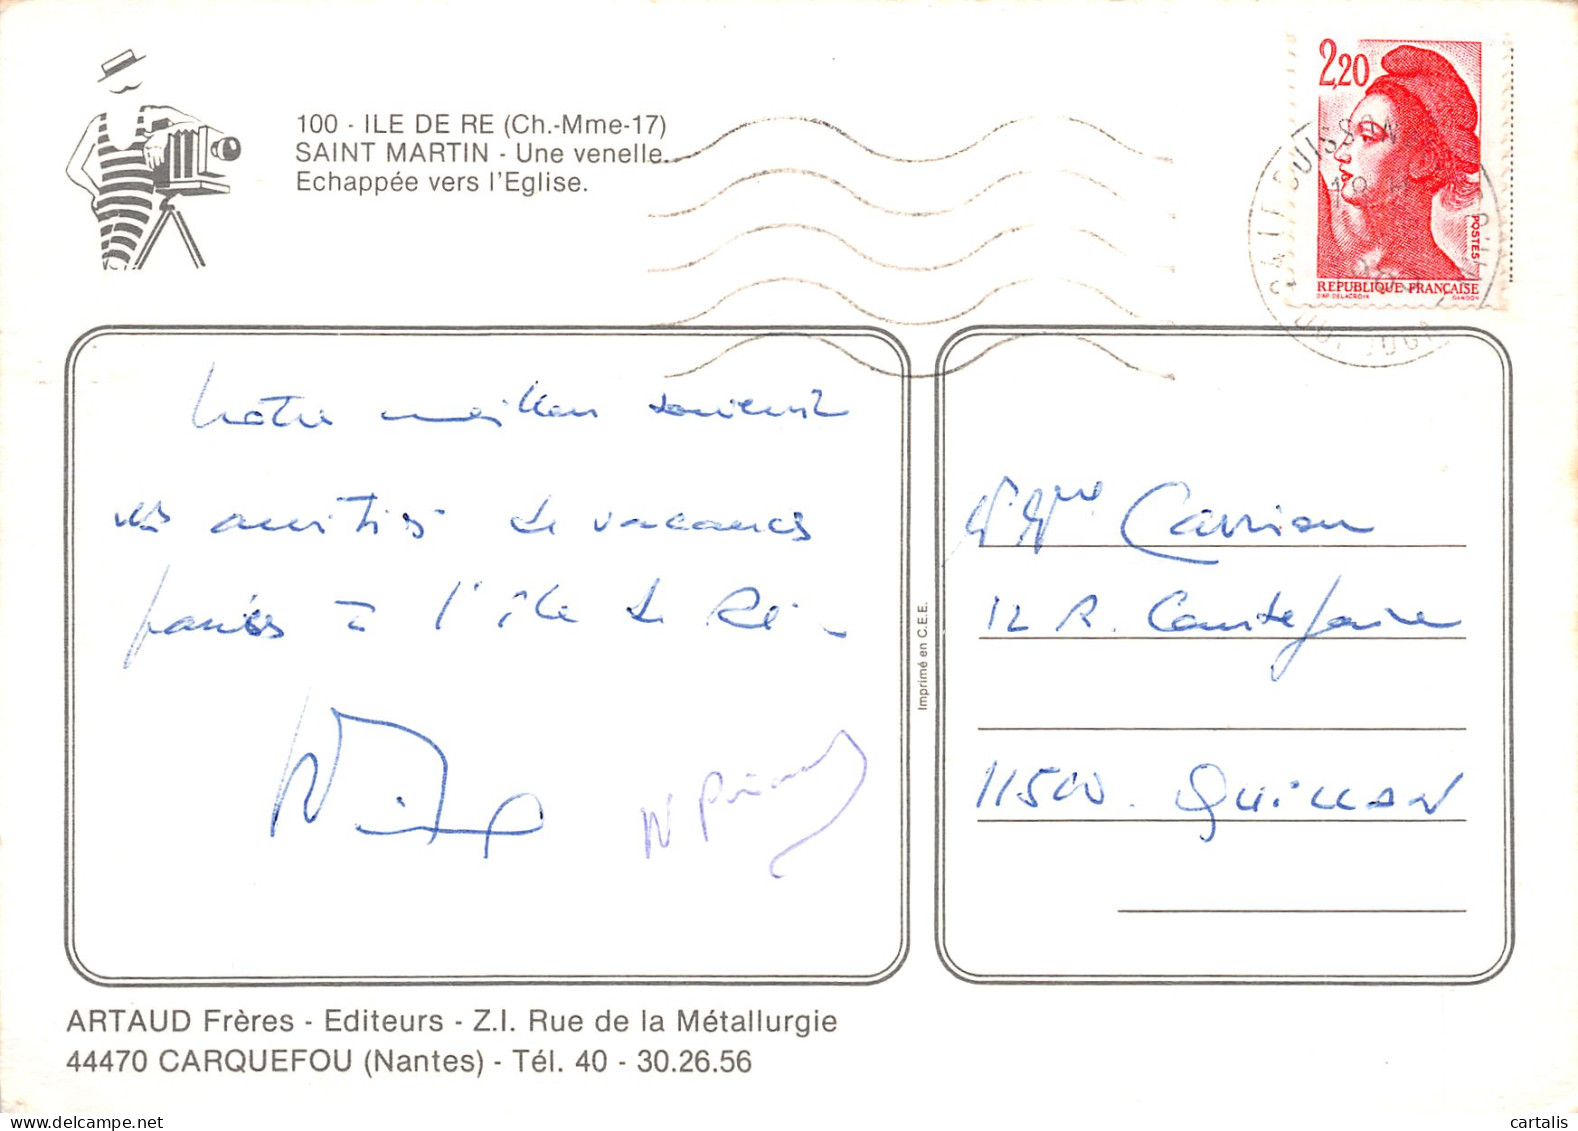 100 - ILE DE RE (Ch.-Mme-17)
SAINT MARTIN - Une venelle.
Echappée vers l'Eglise.
2,20
POSTES
REPUBLIQUE FRANÇAISE
D'AP. DELACROIX GANDON
Notre meilleur souvenir
et amitiés de vacances
passées à l'île de Ré -
Imprimé en C.E.E.
M. Mme Carrion
12 R.
11500 . QUILLAN
ARTAUD Frères - Editeurs - Z.I. Rue de la Métallurgie
44470 CARQUEFOU (Nantes) - Tél. 40 - 30.26.56
cartalis